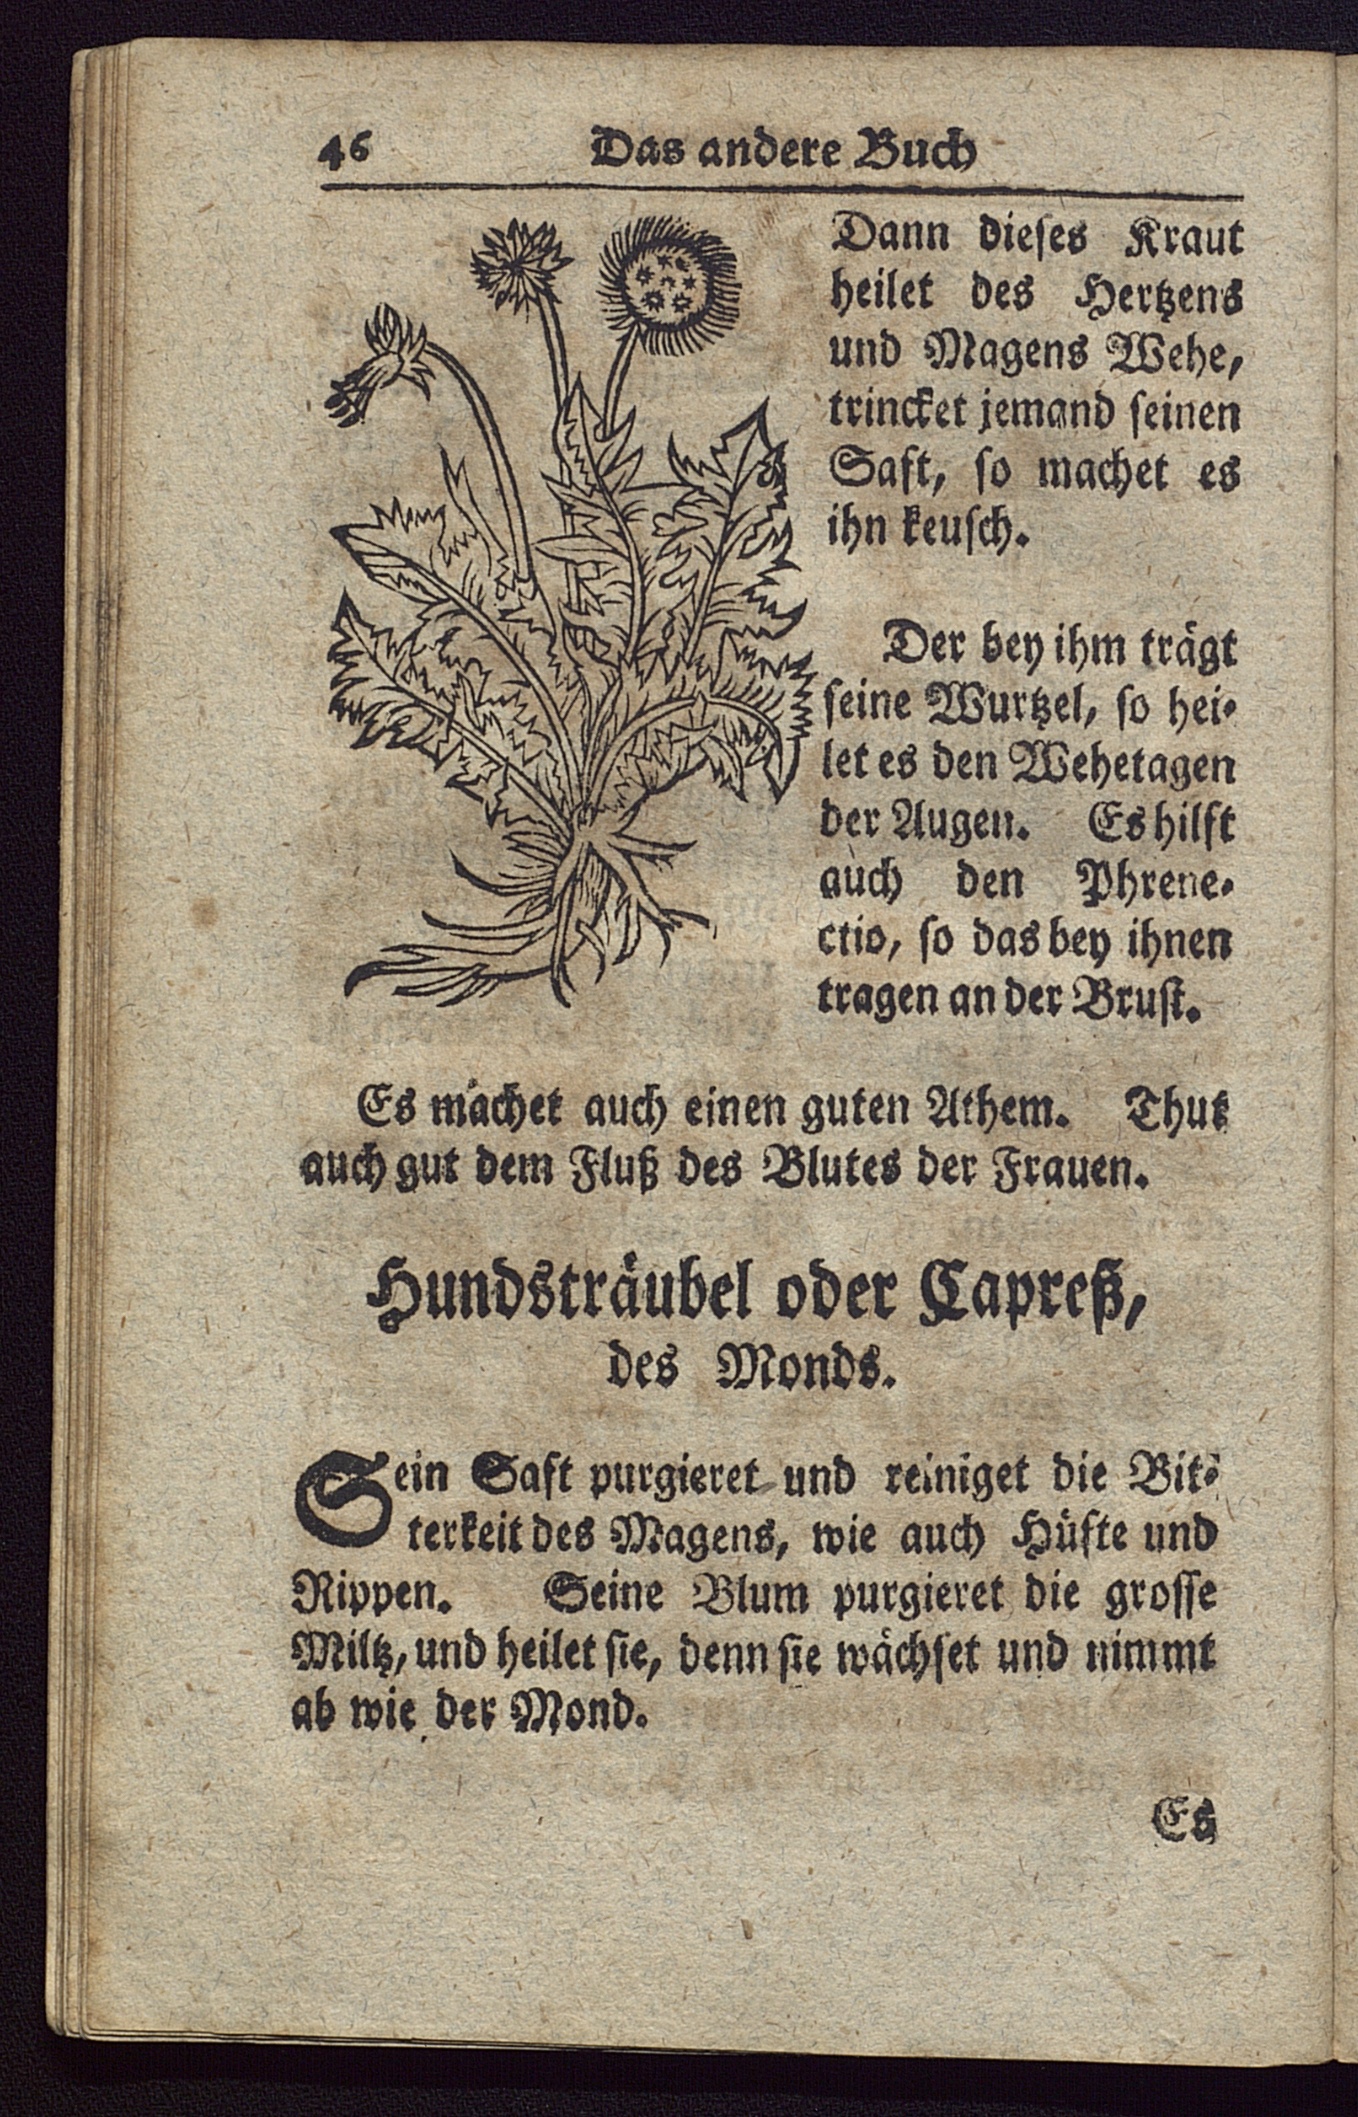 46 Das andere Buch
Dann dieses Kraut
heilet des Hertzens
und Magens Wehe,
trincket jemand seinen
Saft, so machet es
ihn keusch.
Der bey ihm trägt
seine Wurtzel, so hei-
let es den Wehetagen
der Augen. Es hilft
auch den Phrene-
ctio, so das bey ihnen
tragen an der Brust.
Es machet auch einen guten Athem. Thut
auch gut dem Fluß des Blutes der Frauen.
Hundsträubel oder Capreß,
des Monds.
Sein Saft purgieret und reiniget die Bit-
terkeit des Magens, wie auch Hüfte und
Rippen. Seine Blum purgieret die grosse
Miltz, und heilet sie, denn sie wächset und nimmt
ab wie der Mond.
Es